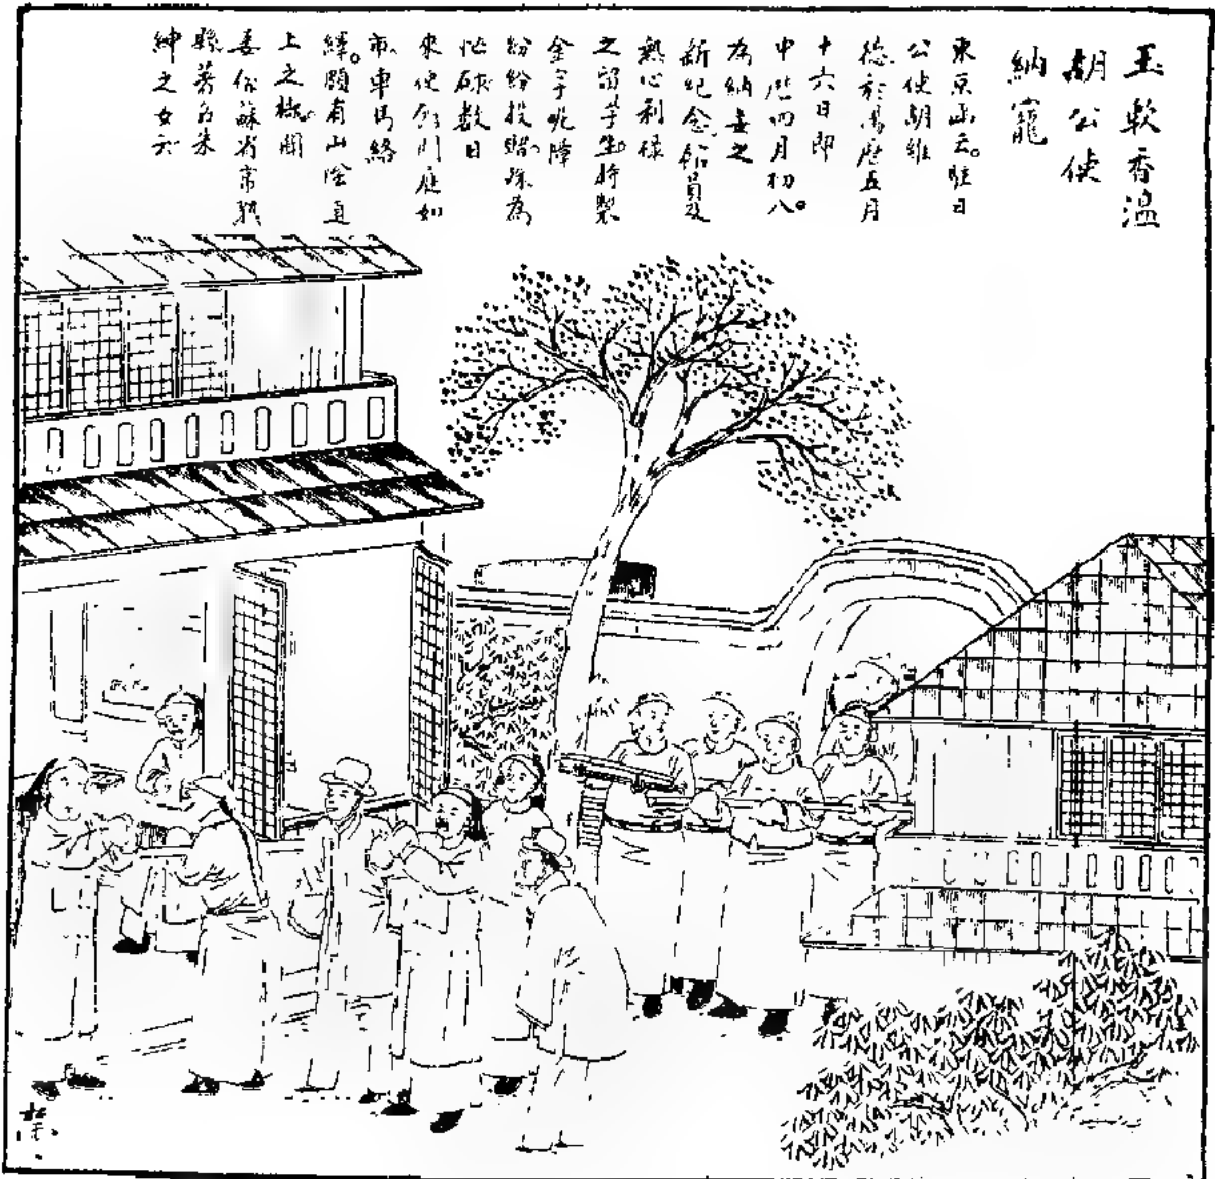 玉軟香溫
胡公使
納寵
東京函云。駐日
公使胡維
德於馬歷五月
十六日即
中歷四月初八。
為納妾之
新紀念。館員及
熱心利祿
之留学生將製
金字帳障
紛紛投贈。孫為
忙碌。数日
來使館門庭如
市。車馬絡
繹。頗有山陰道
上之槪。聞
妾係蘇省常熟
縣著名朱
紳之女云